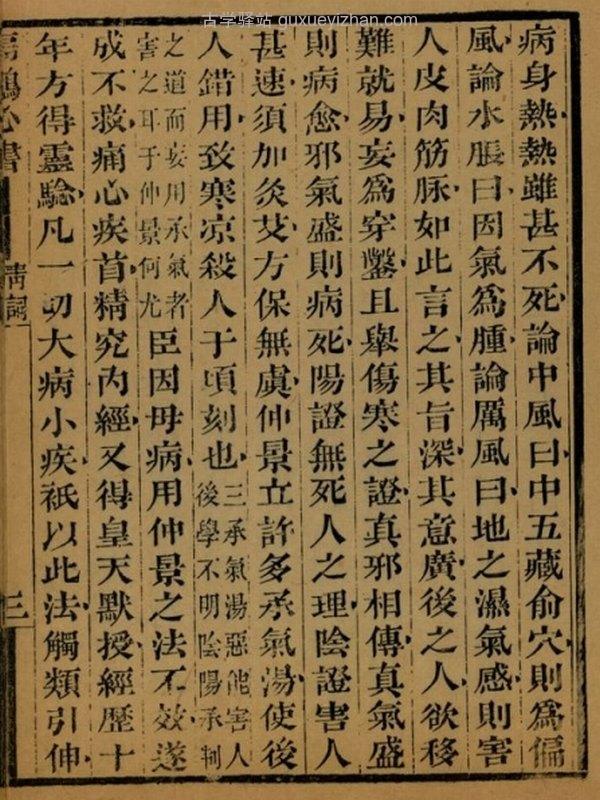 古学驿站 guxueyizhan.com
病身熱熱雖甚不死論中風曰中五藏俞穴則爲偏
風論水脹曰因氣爲腫論厲風曰地之濕氣感則害
人皮肉筋脉如此言之其旨深其意廣後之人欲移
難就易妄爲穿鑿且舉傷寒之證真邪相傳真氣盛
則病愈邪氣盛則病死陽證無死人之理陰證害人
甚速須加灸艾方保無虞仲景立許多承氣湯使後
人錯用致寒凉殺人于頃刻也三承氣湯惡能害人後學不明陰陽承制
之道而妄用承氣者害之耳于仲景何尤臣因母病用仲景之法不效遂
成不救痛心疾首精究内經又得皇天默授經歷十
年方得靈驗凡一切大病小疾祇以此法觸類引伸
鵲心書 三